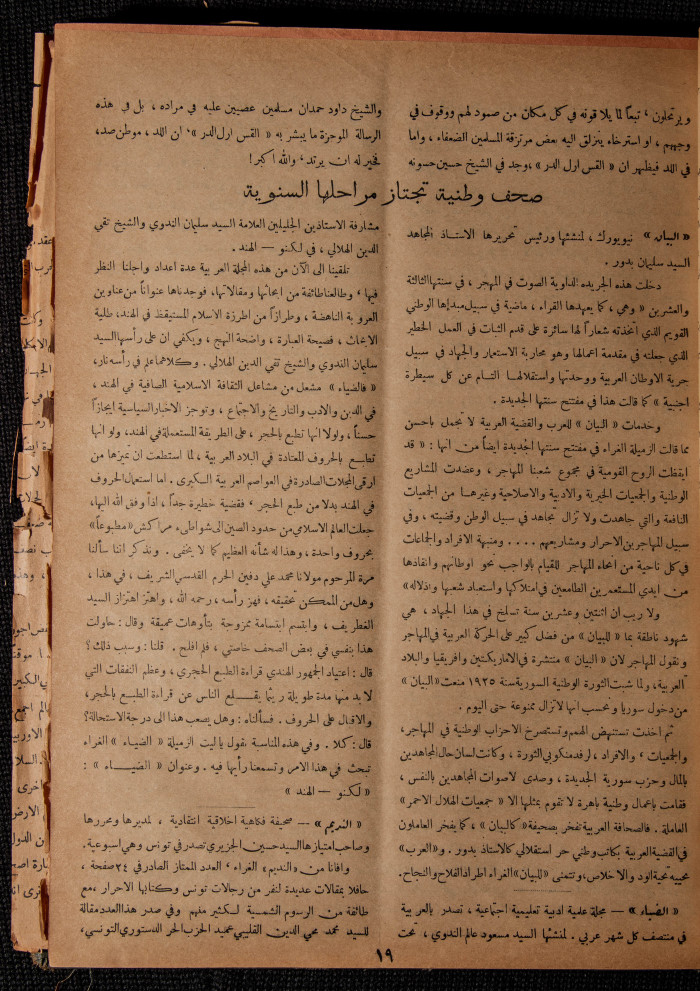 ويرتحلون ، تبعاً لما يلاقونه في كل مكان من صمود لهم ووقوف في
وجههم ، او استرخاء ينزلق اليه بعض مرتزقة المسلمين الضعفاء ، واما
في اللد فيظهر ان « القس ارل الدر » ، وجد في الشيخ حسين حسونه
والشيخ داود حمدان مسلمين عصيين عليه في مراده ، بل في هذه
الرسالة الموجزة ما يبشر به « القس ارل الدر » ، ان اللد ، موطن صد،
فخير له ان يرتد ، والله أكبر !
صحف وطنية تجتاز مراحلها السنوية
« البيان » نيويورك ، لمنشئها ورئيس تحريرها الاستاذ المجاهد
السيد سليمان بدور .
دخلت هذه الجريدة الداوية الصوت في المهجر ، في سنتها الثالثة
والعشرين « وهي ، كما يعهدها القراء ، ماضية في سبيل مبدإها الوطني
القويم الذي اتخذته شعاراً لها سائرة على قدم الثبات في العمل الخطير
الذي جعلته في مقدمة اعمالها وهو محاربة الاستعمار والجهاد في سبيل
حرية الاوطان العربية ووحدتها واستقلالها التام عن كل سيطرة
اجنبية » كما قالت هذا في مفتتح سنتها الجديدة .
وخدمات « البيان » للعرب والقضية العربية لا تجمل بأحسن
مما قالت الزميلة الغراء في مفتتح سنتها الجديدة ايضاً من انها : « قد
ايقظت الروح القومية في مجموع شعبنا المهاجر ، وعضدت المشاريع
الوطنية والجمعيات الخيرية والادبية والاصلاحية وغيرها من الجمعيات
النافعة والتي جاهدت ولا تزال تجاهد في سبيل الوطن وقضيته ، وفي
سبيل المهاجرين الاحرار ومشاريعهم .... ومنبهة الافراد والجماعات
في كل ناحية من انحاء المهاجر للقيام بالواجب نحو اوطانهم وانقاذها
من ايدي المستعمرين الطامعين في امتلاكها واستعباد شعبها واذلاله»
ولا ريب ان اثنتين وعشرين سنة تسلخ في هذا الجهاد ، هي
شهود ناطقة بما « للبيان » من فضل كبير على الحركة العربية في المهاجر
ونقول المهاجر لان « البيان » منتشرة في الاماريكتين وافريقيا والبلاد
العربية، ولما شبت الثورة الوطنية السورية سنة ١٩٢٥ منعت «البيان»
من دخول سوريا ونحسب انها لاتزال ممنوعة حتى اليوم .
ثم اخذت تستنهض الهمم وتستصرخ الاحزاب الوطنية في المهاجر ،
والجمعيات ، والافراد ، لرفد منكوبي الثورة ، وكانت لسان حال المجاهدين
بالمال وحزب سورية الجديدة ، وصدى لاصوات المجاهدين بالنفس ،
فقامت بإعمال وطنية باهرة لا تقوم بمثلها الا « جمعيات الهلال الاحمر »
العاملة . فالصحافة العربية تفخر بصحيفة «كالبيان » ، كما يفخر العاملون
في القضية العربية بكاتب وطني حر استقلالي كالاستاذ بدور . و «العرب»
محييه تحية الود والاخلاص ، وتتمنى « للبيان » الغراء اطراد الفلاح والنجاح.
« الضياء » — مجلة علمية ادبية تعليمية اجتماعية ، تصدر بالعربية
في منتصف كل شهر عربي . لمنشئها السيد مسعود عالم الندوي ، تحت
مشارفة الاستاذين الجليلين العلامة السيد سليمان الندوي والشيخ تقي
الدين الهلالي ، في لكنو — الهند .
تلقينا الى الآن من هذه المجلة العربية عدة اعداد واجلنا النظر
فيها ، وطالعنا طائفة من ابحاثها ومقالاتها، فوجدناها عنواناً من عناوين
العروبة الناهضة ، وطرازاً من اطرزة الاسلام المستيقظ في الهند، طلية
الابحاث ، فصيحة العبارة ، واضحة النهج ، ويكفي ان على رأسها السيد
سليمان الندوي والشيخ تقي الدين الهلالي . وكلاهما علم في رأسه نار،
« فالضياء » مشعل من مشاعل الثقافة الاسلامية الصافية في الهند ،
في الدين والادب والتاريخ والاجتماع ، وتوجز الاخبار السياسية ايجازاً
حسناً ، ولولا انها تطبع بالحجر ، على الطريقة المستعملة في الهند، ولو انها
تطبع بالحروف المعتادة في البلاد العربية ، لما استطعت ان تميزها من
ارقى المجلات الصادرة في العواصم العربية الكبرى . اما استعمال الحروف
في الهند بدلا من طبع الحجر ، فقضية خطيرة جداً ، اذا وفق الله اليها،
جعلت العالم الاسلامي من حدود الصين الى شواطىء مراكش «مطبوعاً»
بحروف واحدة ، وهذا له شأنه العظيم كما لا يخفى . ونذكر اننا سألنا
مرة المرحوم مولانا محمد علي دفين الحرم القدسي الشريف ، في هذا ،
وهل من الممكن تحقيقه ، فهز رأسه ، رحمه الله ، واهتز اهتزاز السيد
الغطريف ، وابتسم ابتسامة ممزوجة بتأوهات عميقة وقال : حاولت
هذا بنفسي في بعض الصحف خاصتي ، فلم افلح . قلنا : وسبب ذلك ؟
قال : اعتياد الجمهور الهندي قراءة الطبع الحجري ، وعظم النفقات التي
لا بد منها مدة طويلة ريثما يقلع الناس عن قراءة الطبع بالحجر،
والاقبال على الحروف . فسألناه : وهل يصعب هذا الى درجة الاستحالة؟
قال : كلا . وفي هذه المناسبة نقول ياليت الزميلة « الضياء » الغراء
تبحث في هذا الامر وتسمعنا رأيها فيه . وعنوان « الضياء » :
« لكنو — الهند »
« النديم » — صحيفة فكاهية اخلاقية انتقادية ، لمديرها ومحررها
وصاحب امتيازها السيد حسين الجزيري تصدر في تونس وهي اسبوعية.
وافانا من «النديم» الغراء ، العدد الممتاز الصادر في ٢٤ صفحة ،
حافلا بمقالات عديدة لنفر من رجالات تونس وكتابها الاحرار ، مع
طائفة من الرسوم الشمسية لكثير منهم وفي صدر هذا العدد مقالة
للسيد محمد محي الدين القليبي عميد الحزب الحر الدستوري التونسي،
١٩